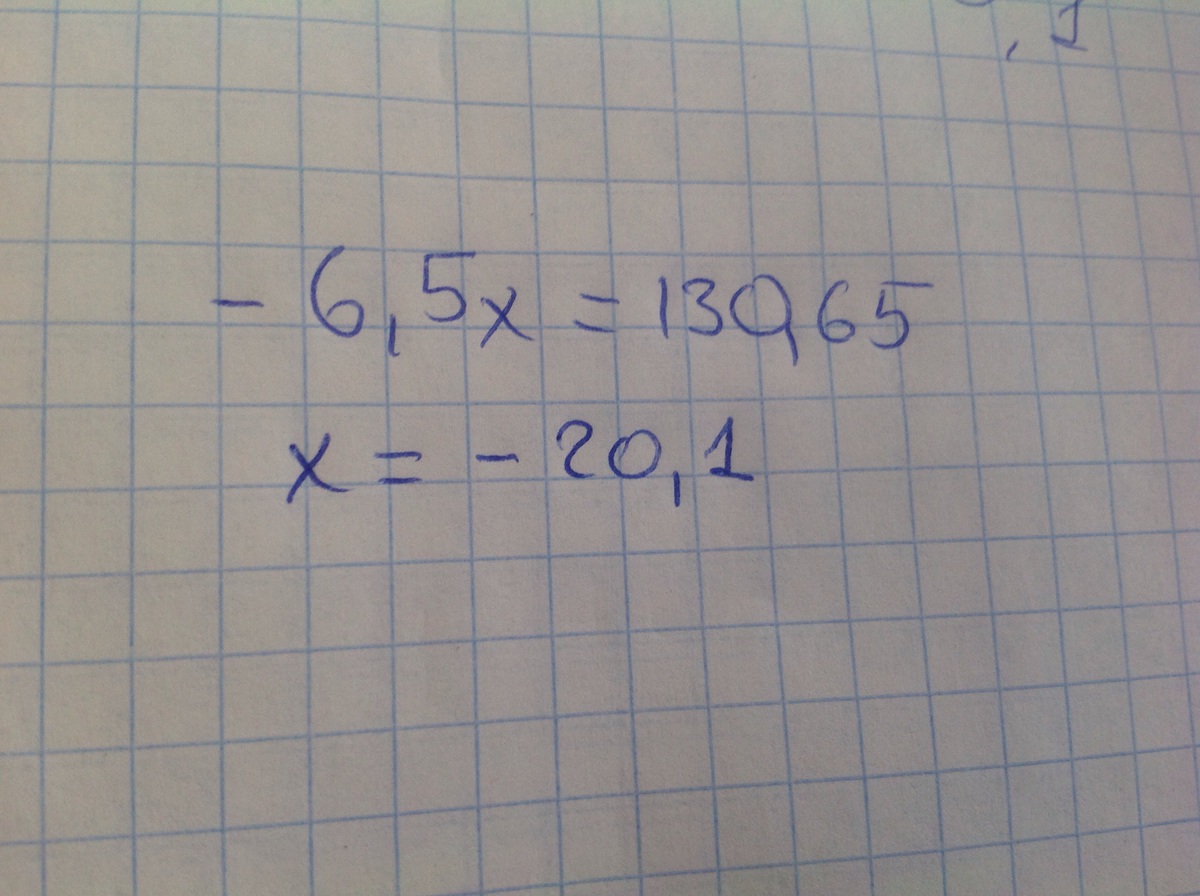 , 1
- 6,5x = 130,65
x = - 20,1